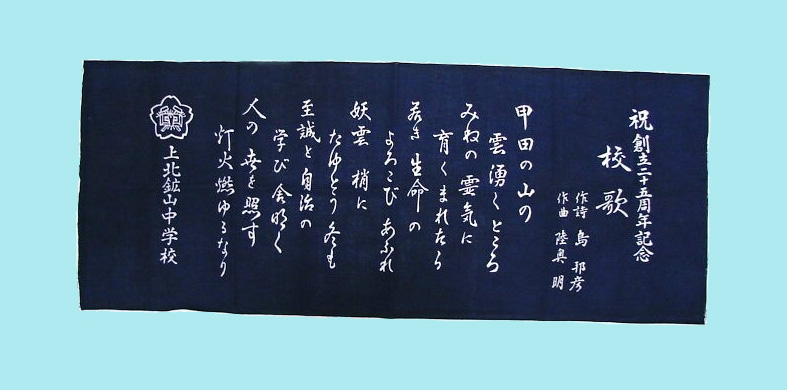 祝創立二十五周年記念
校歌
作詩 島 邦彦
作曲 陸奥 明
甲田の山の
雲湧くところ
みねの霊気に
育くまれたる
若き生命の
よろこびあふれ
妖雲 梢に
たゆとう冬も
至誠と自治の
学び舎明く
人の世を照す
灯火燃ゆるなり
上北鉱山中学校